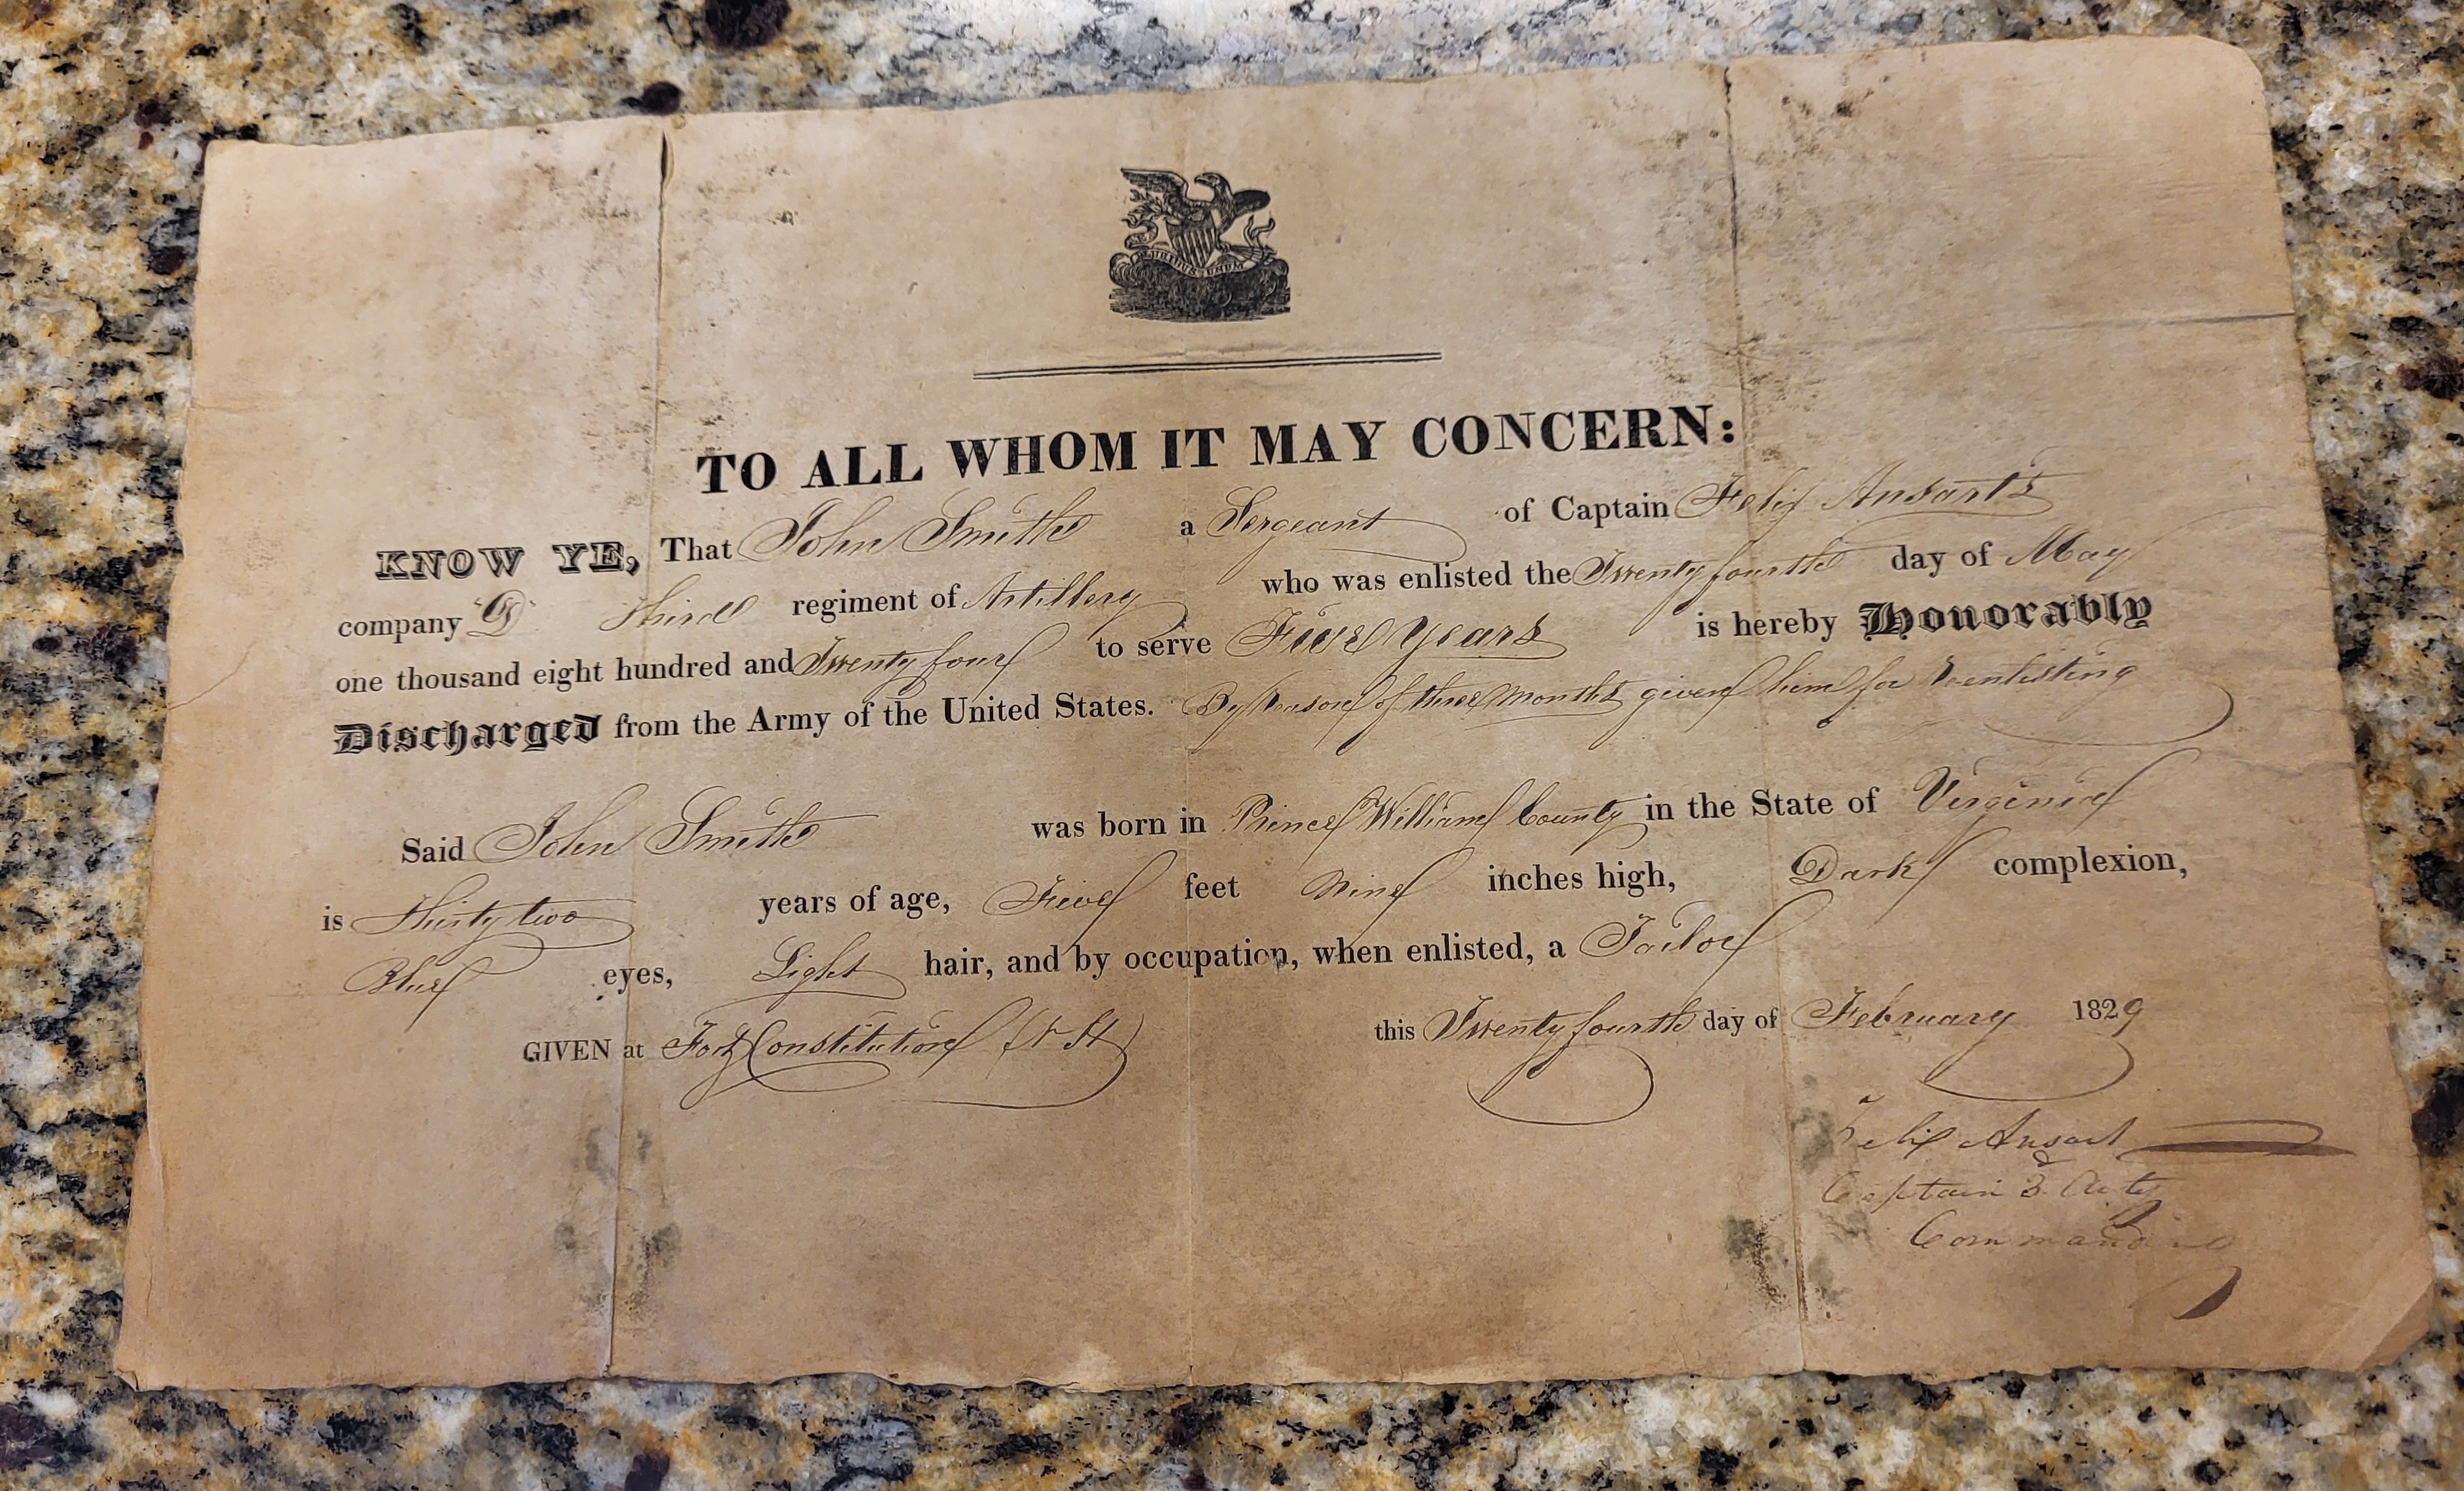 E PLURIBUS UNUM
TO ALL WHOM IT MAY CONCERN:
KNOW YE, That John Smith a Sergeant of Captain Felix Ansart's
company "D" Third regiment of Artillery who was enlisted the Twenty fourth day of May
one thousand eight hundred and Twenty four to serve Five Years is hereby Honorably
Discharged from the Army of the United States. By reason of three months given him for reenlisting
Said John Smith was born in Prince William County in the State of Virginia
is Thirty two years of age, Five feet Nine inches high, Dark complexion,
Blue eyes, Light hair, and by occupation, when enlisted, a Tailor
GIVEN at Fort Constitution this Twenty fourth day of February 1829
Felix Ansart
Captain 3d Arty
Commanding